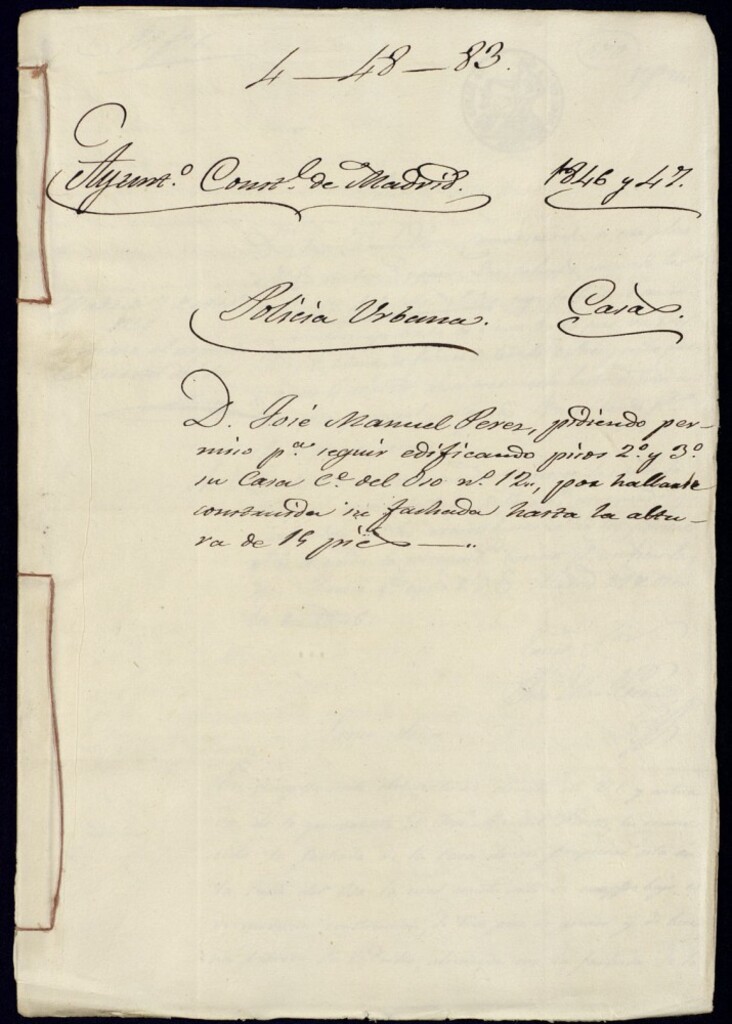 4-48-83.
Ayunt.º Const.l de Madrid. 1846 y 47.
Policia Urbana. Casas.
D. José Manuel Perez, pidiendo per-
miso p.a seguir edificando pisos 2.º y 3.º
su Casa C.e del Oso n.º 12, por hallarse
construida su fachada hasta la altu-
ra de 15 pies